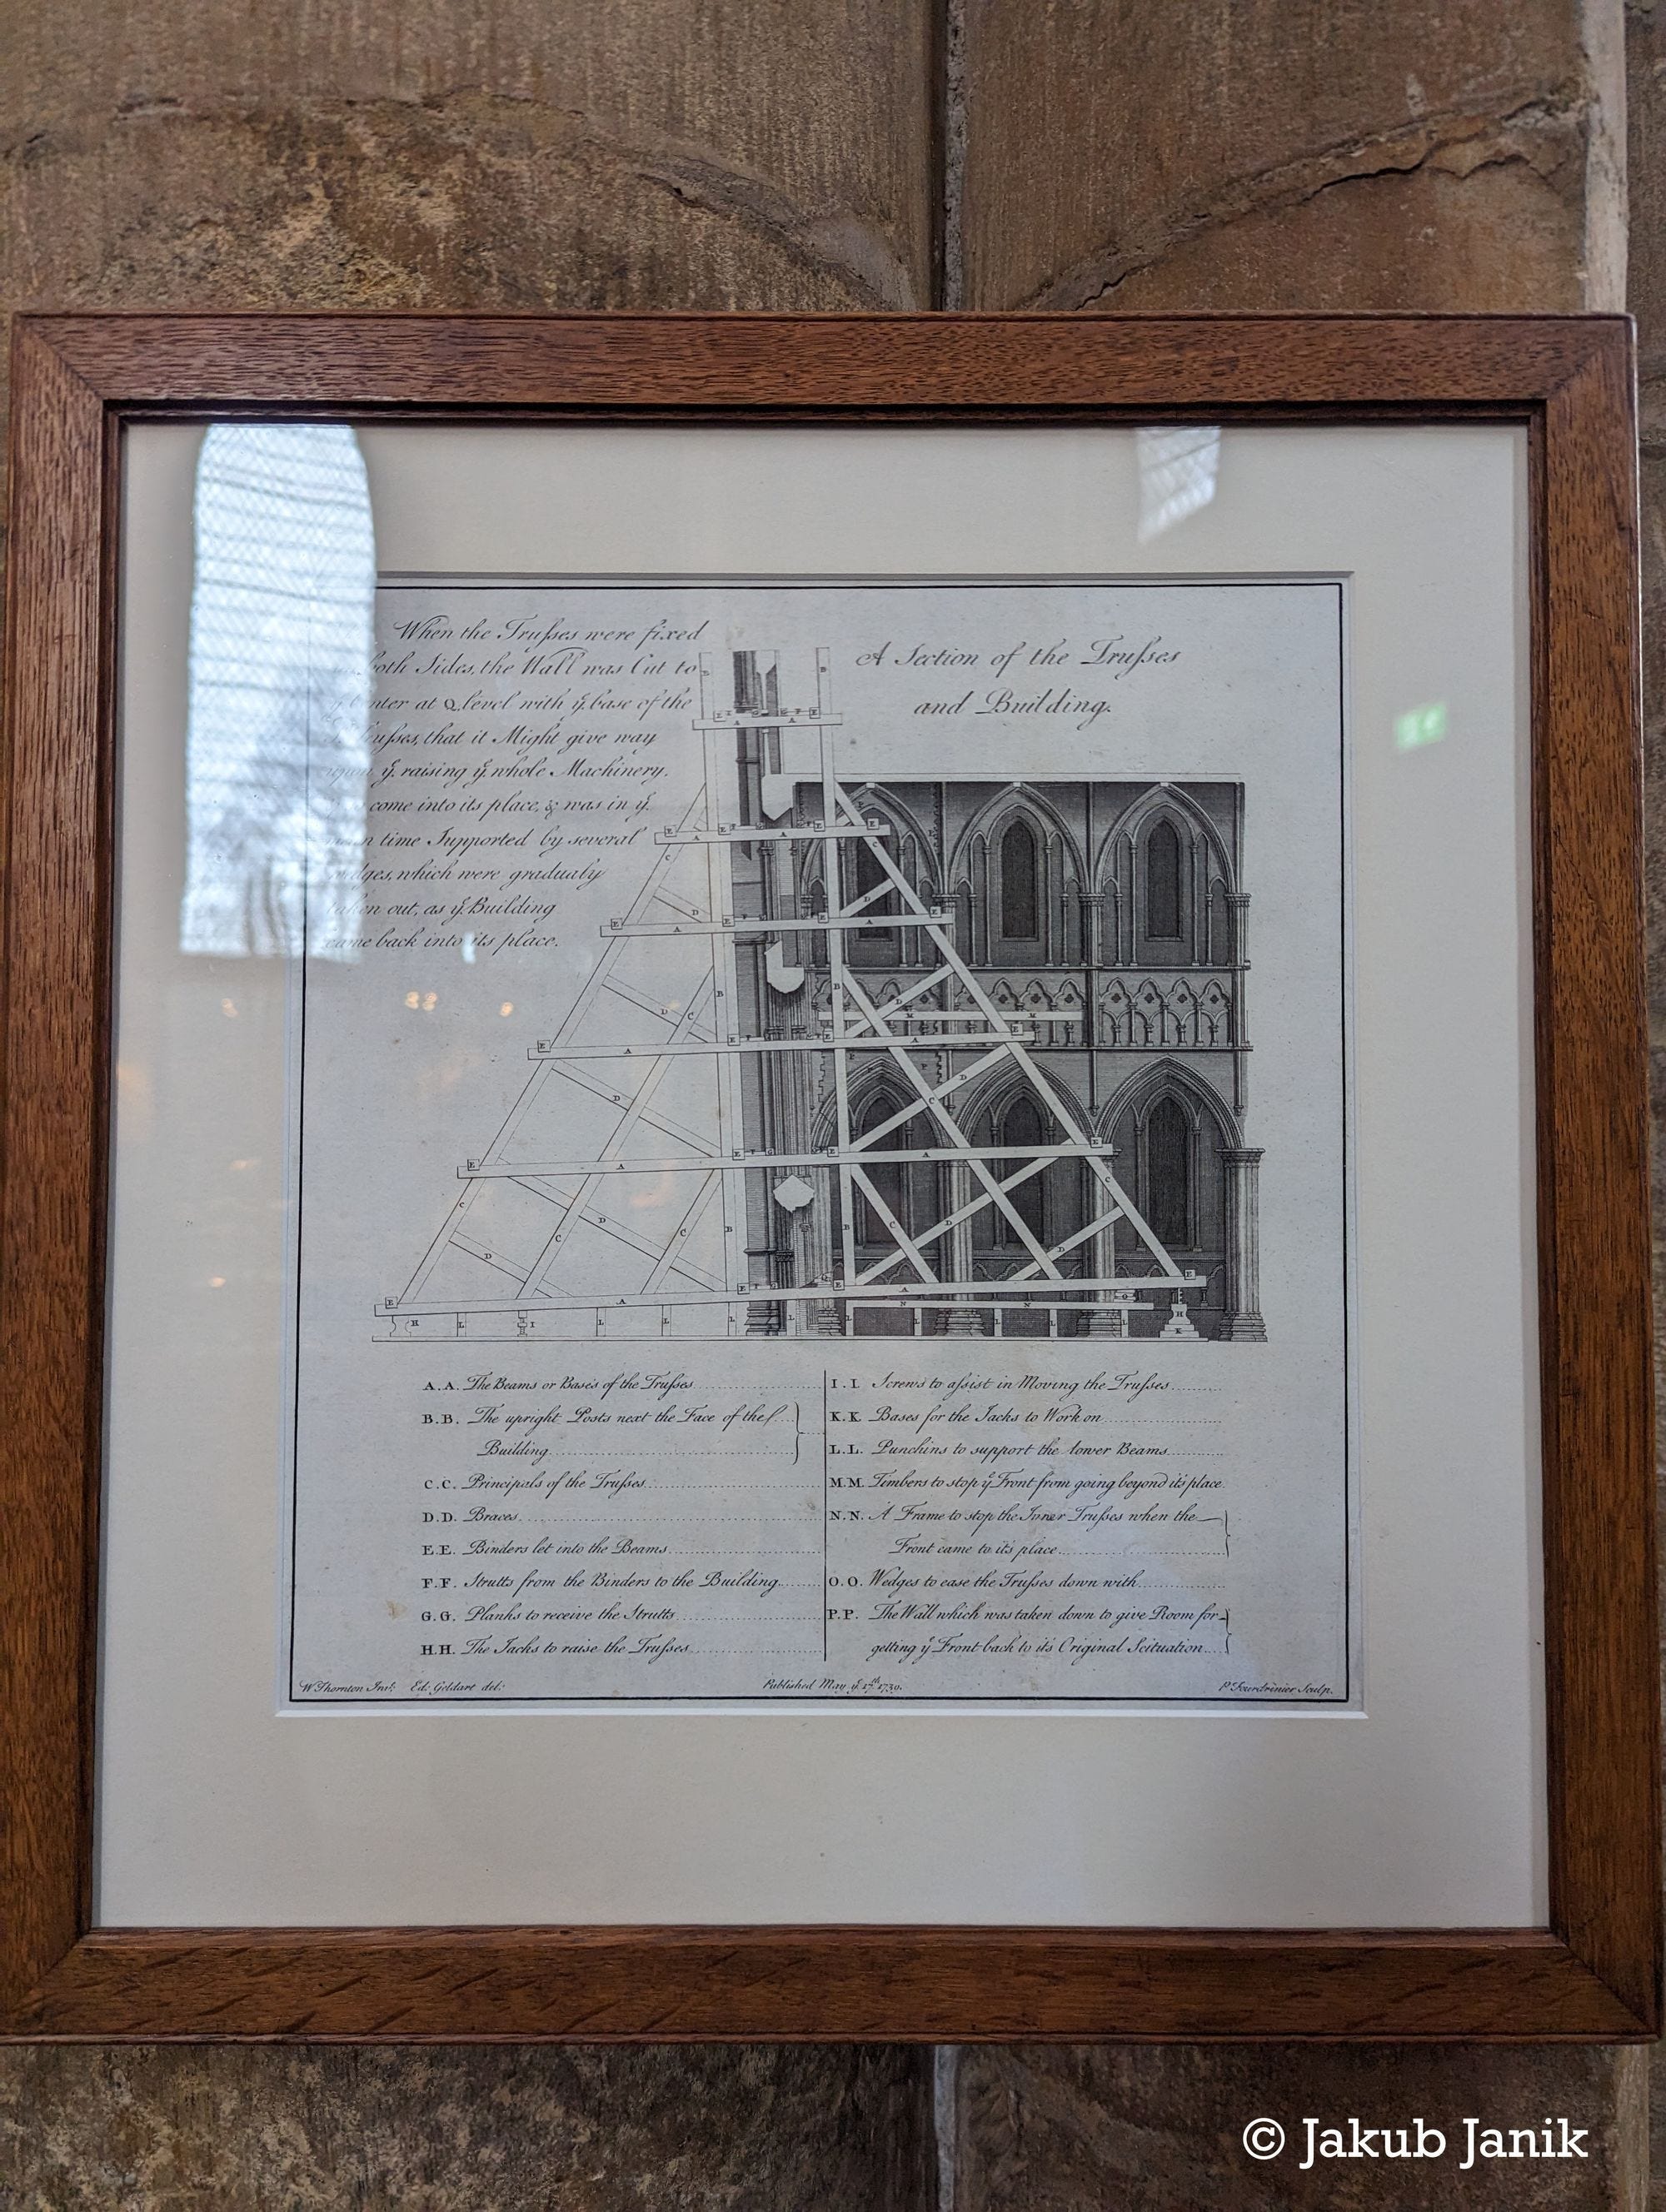 When the Trusses were fixed
both Sides, the Wall was Cut to
at Q. level with ye. base of the
that it Might give way
ye. raising ye. whole Machinery.
come into its place, & was in ye.
time Supported by several
which were gradualy
out, as ye. Building
came back into its place.
A Section of the Trusses
and Building.
A.A. The Beams or Bases of the Trusses
B.B. The upright Posts next the Face of the
Building
C.C. Principals of the Trusses
D.D. Braces
E.E. Binders let into the Beams
F.F. Strutts from the Binders to the Building
G.G. Planks to receive the Strutts
H.H. The Jacks to raise the Trusses
I.I Screws to assist in Moving the Trusses
K.K Bases for the Jacks to Work on
L.L. Punchins to support the lower Beams
M.M. Timbers to stop ye Front from going beyond it's place.
N.N. A Frame to stop the Inner Trusses when the
Front came to it's place
O.O. Wedges to ease the Trusses down with
P.P. The Wall which was taken down to give Room for
getting ye Front back to it's Original Scituation
W. Thornton Invt. Ed: Geldart del:
Published May ye 17th 1739.
P. Fourdrinier Sculp.
© Jakub Janik